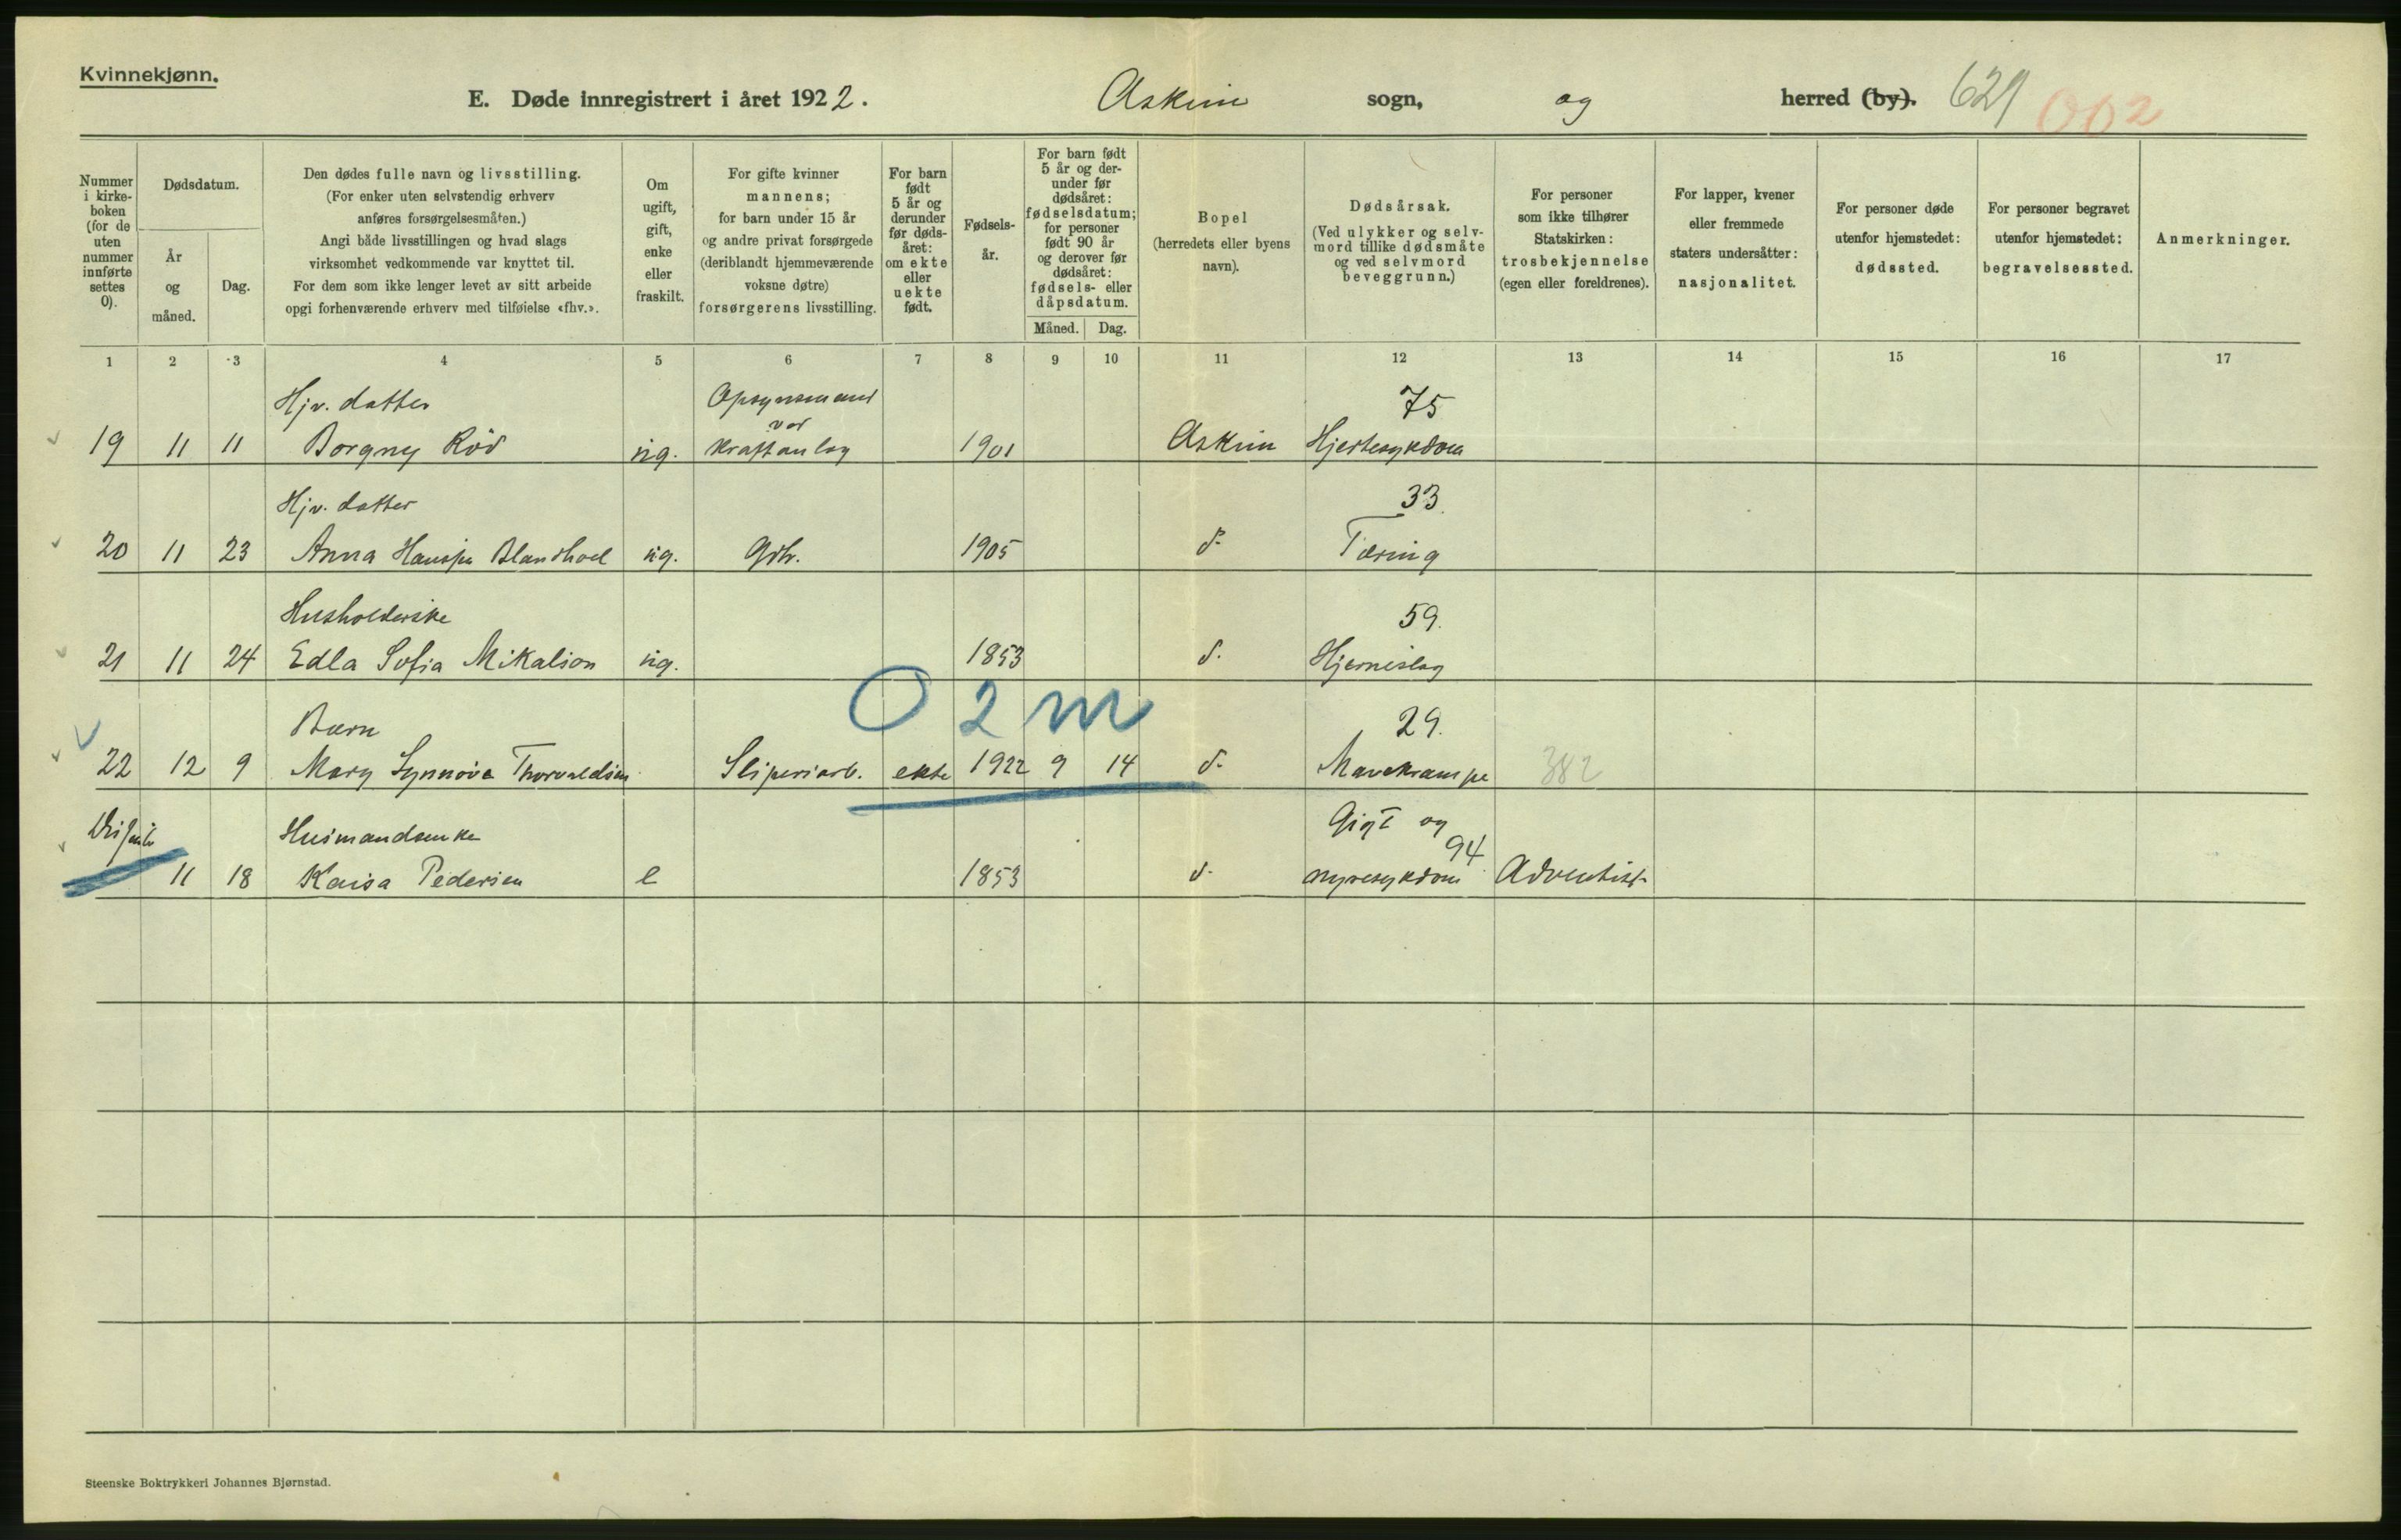 Kvinnekjønn.
E. Døde innregistrert i året 1922. Askim sogn, og herred (by). 629 002
Nummer i kirke-boken (for de uten nummer innførte settes 0).
Dødsdatum.
År og måned.
Dag.
Den dødes fulle navn og livsstilling.
(For enker uten selvstendig erhverv
anføres forsørgelsesmåten.)
Angi både livsstillingen og hvad slags
virksomhet vedkommende var knyttet til.
For dem som ikke lenger levet av sitt arbeide
opgi forhenværende erhverv med tilføielse «fhv.».
Om
ugift,
gift,
enke
eller
fraskilt.
For gifte kvinner
mannens;
for barn under 15 år
og andre privat forsørgede
(deriblandt hjemmeværende
voksne døtre)
forsørgerens livsstilling.
For barn
født
5 år og
derunder
før døds-
året:
om ekte
eller
uekte
født.
Fødsels-
år.
For barn født
5 år og der-
under før
dødsåret:
fødselsdatum;
for personer
født 90 år
og derover før
dødsåret:
fødsels- eller
dåpsdatum.
Måned. Dag.
Bopel
(herredets eller byens
navn).
Dødsårsak.
(Ved ulykker og selv-
mord tillike dødsmåte
og ved selvmord
beveggrunn.)
For personer
som ikke tilhører
Statskirken:
trosbekjennelse
(egen eller foreldrenes).
For lapper, kvener
eller fremmede
staters undersåtter:
nasjonalitet.
For personer døde
utenfor hjemstedet:
dødssted.
For personer begravet
utenfor hjemstedet:
begravelsessted.
Anmerkninger.
1 2 3 4 5 6 7 8 9 10 11 12 13 14 15 16 17
Hjv. datter Opsynsmand 75
ved
19 11 11 Borgny Röd ug. kraftanlæg 1901 Askim Hjertesykdom
Hjv. datter 33.
20 11 23 Anna Blandhoel ug. Gbr. 1905 d. Tæring
Husholderske 59.
21 11 24 Edla Sofia Mikalson ug. 1853 d. Hjerneslag
0 2 m
Barn 29.
22 12 9 Mary Synnöve Thorvaldsen Sliperiarb. ekte 1922 9 14 d. Mavekrampe 382
Husmandsenke Gigt og
94
11 18 Kaisa Pedersen e 1853 d. nyresykdom Adventist
Steenske Boktrykkeri Johannes Bjørnstad.